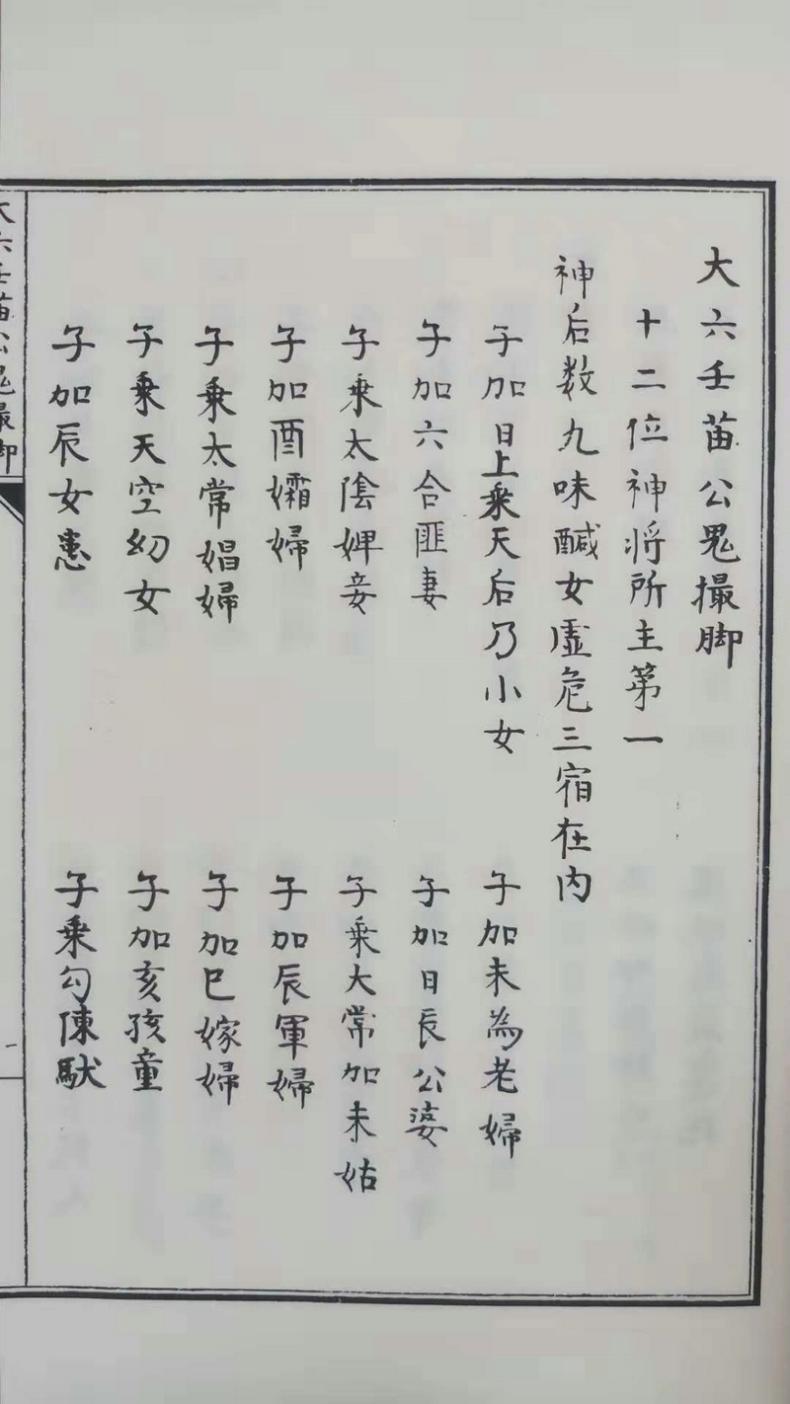 大六壬苗公鬼撮脚
十二位神将所主第一
神后数九味醎女虚危三宿在内
子加日上乘天后乃小女
子加未為老婦
子加六合匪妻
子加日辰公婆
子乘太陰婢妾
子乘大常加未姑
子加酉孀婦
子加辰軍婦
子乘太常娼婦
子加巳嫁婦
子乘天空幼女
子加亥孩童
子加辰女恚
子乘勾陳馱
大六壬苗公鬼撮脚
一